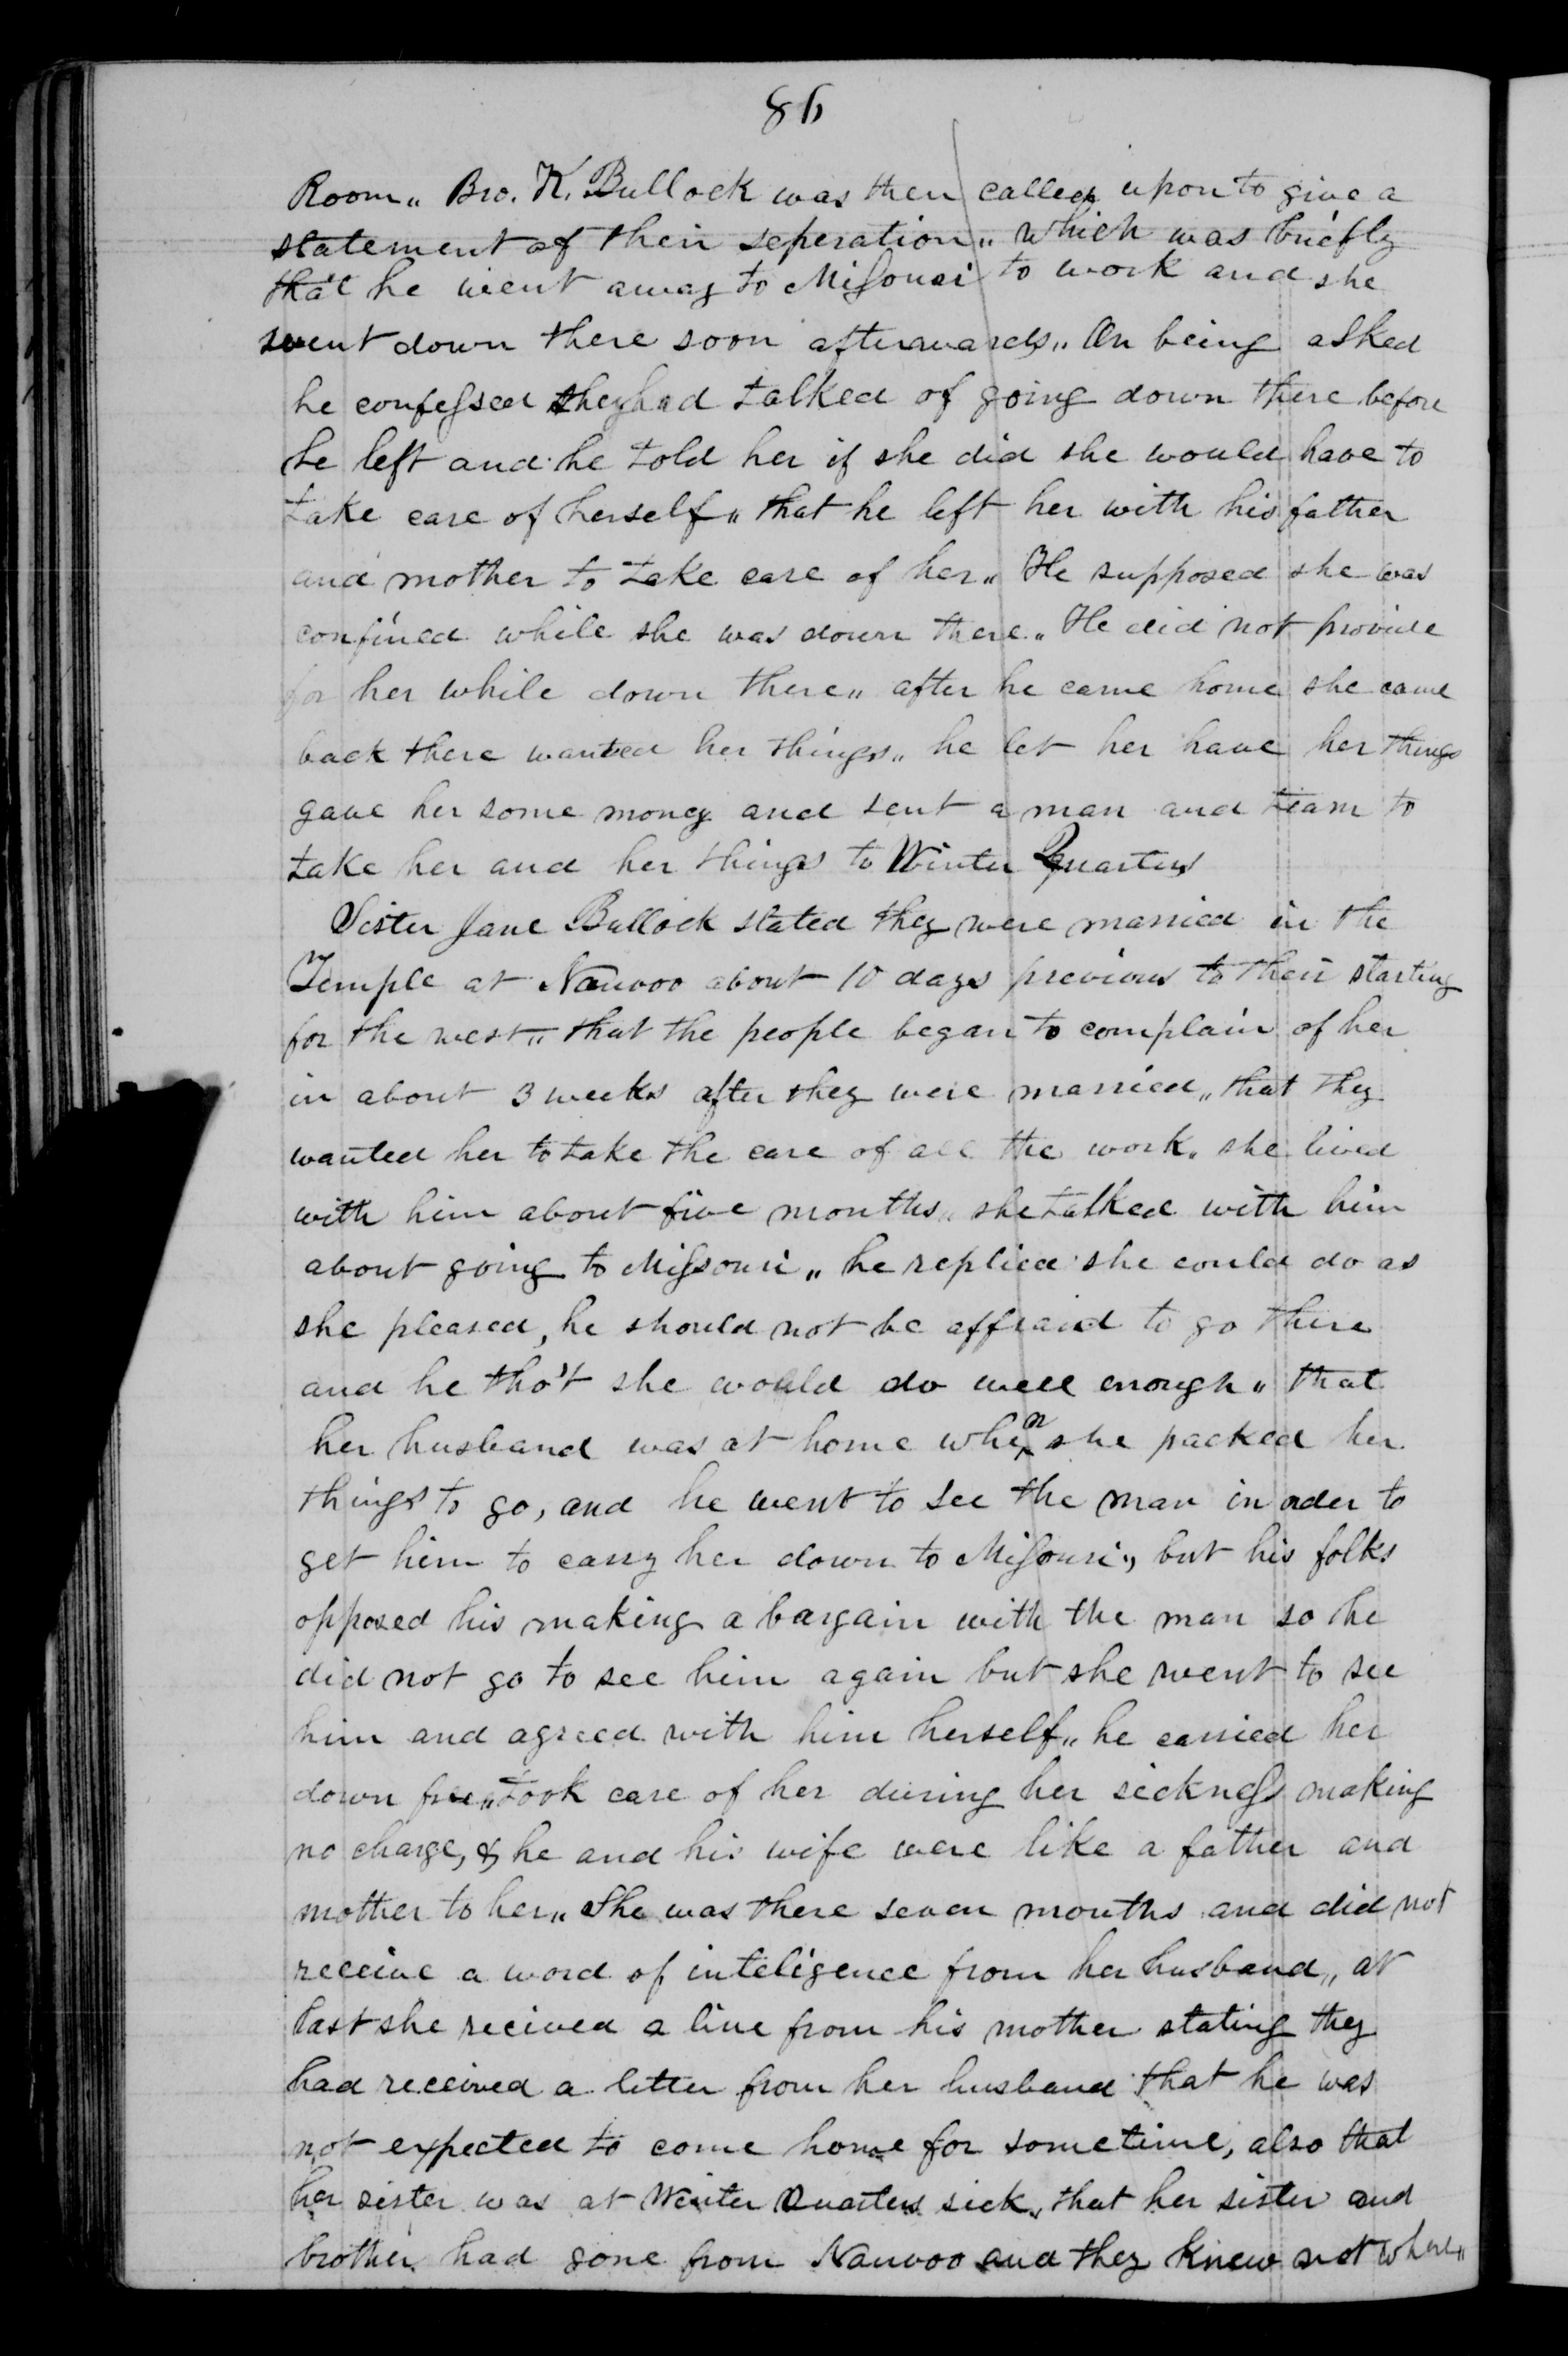 86
Room„ Bro. K. Bullock was then called upon to give a
statement of their seperation„ which was briefly
that he went away to Missouri to work and she
went down there soon afterwards„ On being asked
he confessed they had talked of going down there before
he left and he told her if she did she would have to
take care of herself„ that he left her with his father
and mother to take care of her„ He supposed she was
confined while she was down there„ He did not provide
for her while down there„ after he came home she came
back there wanted her things„ he let her have her things
gave her some money and sent a man and team to
take her and her things to Winter Quarters
Sister Jane Bullock stated they were married in the
Temple at Nauvoo about 10 days previous to their starting
for the west„ that the people began to complain of her
in about 3 weeks after they were married„ that they
wanted her to take the care of all the work, she lived
with him about five months„ she talked with him
about going to Missouri„ he replied she could do as
she pleased, he should not be affraid to go there
and he tho't she would do well enough„ that
her husband was at home when she packed her
things to go, and he went to see the man in order to
get him to carry her down to Missouri, but his folks
opposed his making a bargain with the man so he
did not go to see him again but she went to see
him and agreed with him herself„ he carried her
down free„ took care of her during her sickness making
no charge, & he and his wife were like a father and
mother to her„ She was there seven months and did not
receive a word of inteligence from her husband„ at
last she recived a line from his mother stating they
had received a letter from her husband that he was
not expected to come home for sometime, also that
her sister was at Winter Quarters sick, that her sister and
brother had gone from Nauvoo and they knew not where„